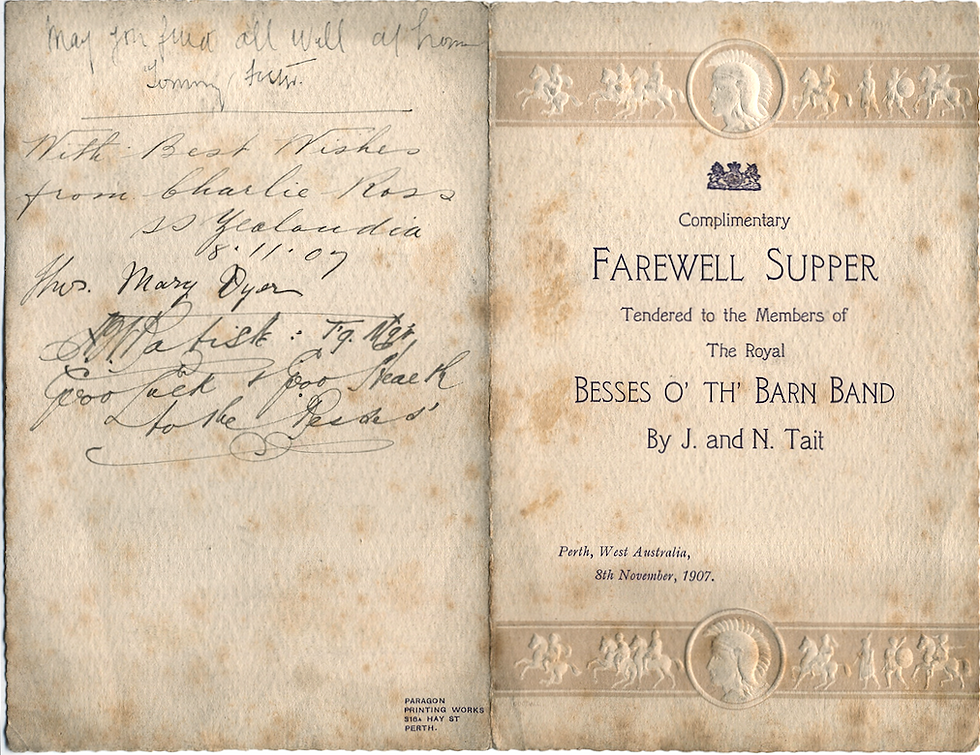 May you find all well at home
Tommy
With Best Wishes
from Charlie Ross
ss Zealandia
8.11.07
Mary Dyer
Good Luck & Good Health
to the Besses'
PARAGON
PRINTING WORKS
516A HAY ST
PERTH.
Complimentary
FAREWELL SUPPER
Tendered to the Members of
The Royal
BESSES O' TH' BARN BAND
By J. and N. Tait
Perth, West Australia,
8th November, 1907.